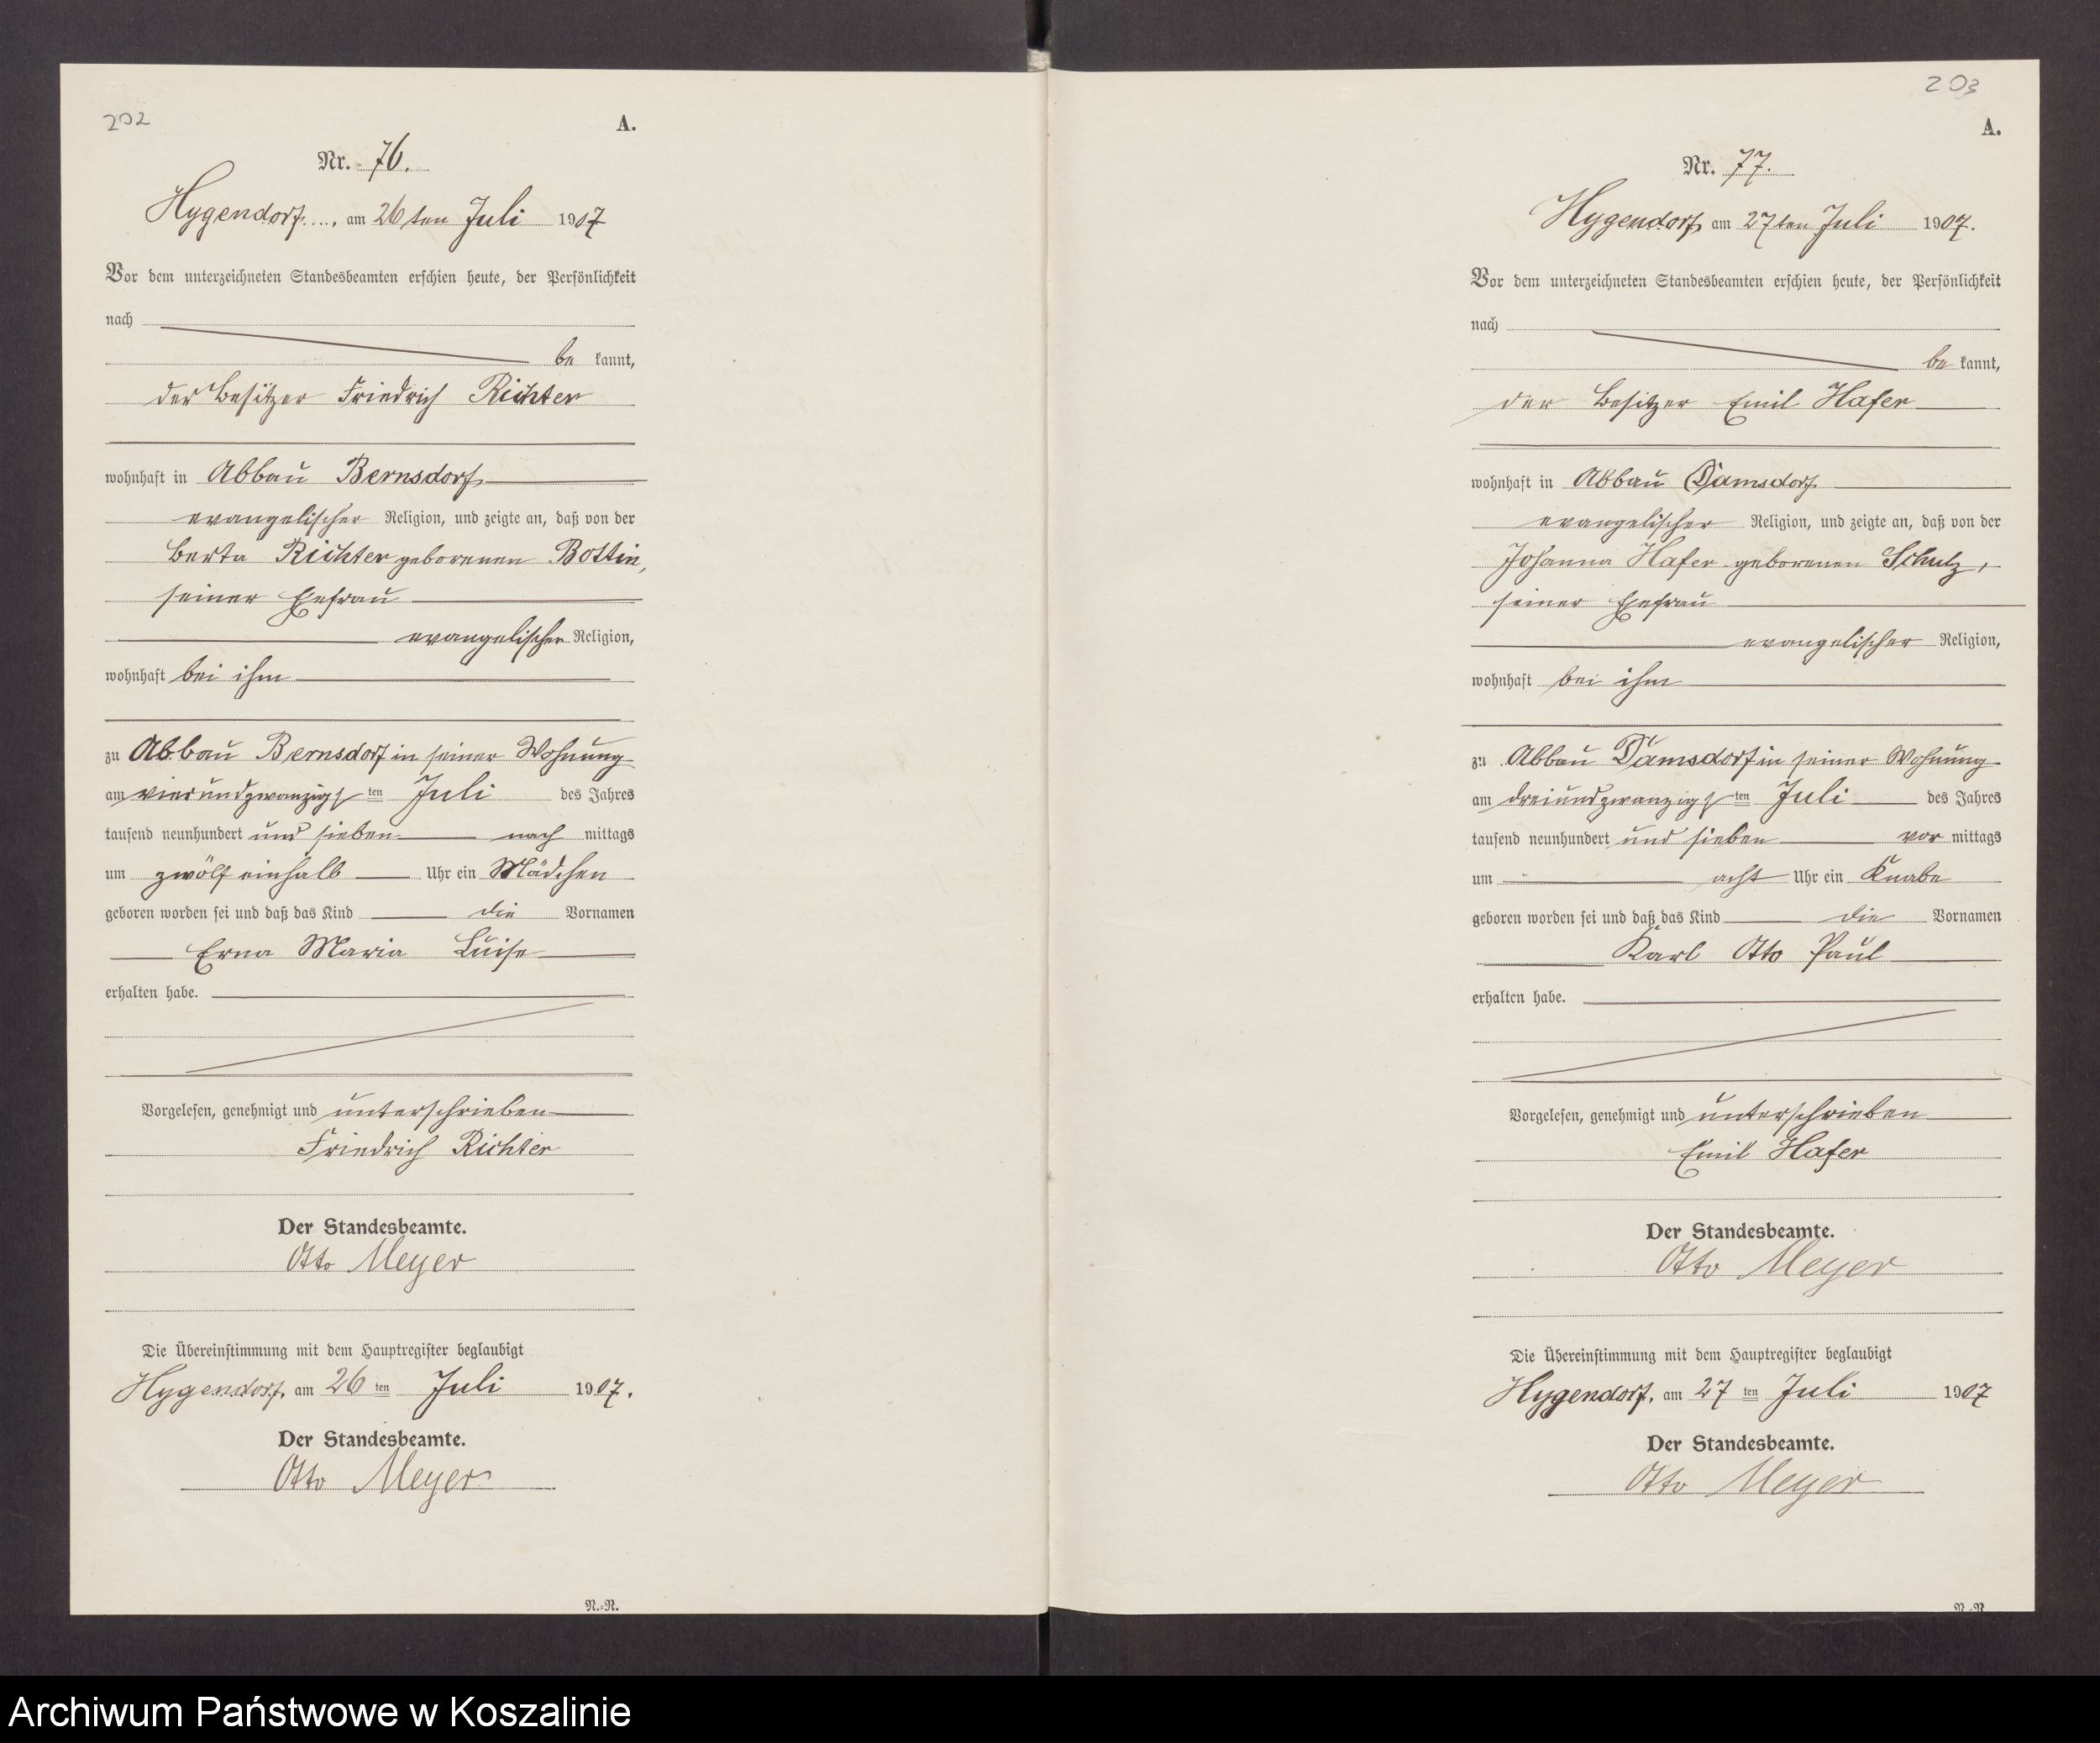 202
A.
Nr. 76.
Hygendorf, am 26ten Juli 1907
Vor dem unterzeichneten Standesbeamten erschien heute, der Persönlichkeit
nach
be kannt,
der Besitzer Friedrich Richter
wohnhaft in Abbau Bernsdorf
evangelischer Religion, und zeigte an, daß von der
Berta Richter geborenen Bottin,
seiner Ehefrau
evangelischer Religion,
wohnhaft bei ihm
zu Abbau Bernsdorf in seiner Wohnung
am vierundzwanzigsten Juli des Jahres
tausend neunhundert und sieben nach mittags
um zwölf einhalb Uhr ein Mädchen
geboren worden sei und daß das Kind die Vornamen
Erna Maria Luise
erhalten habe.
Vorgelesen, genehmigt und unterschrieben
Friedrich Richter
Der Standesbeamte.
Otto Meyer
Die Übereinstimmung mit dem Hauptregister beglaubigt
Hygendorf, am 26 ten Juli 1907.
Der Standesbeamte.
Otto Meyer
N.-N.
203
A.
Nr. 77.
Hygendorf, am 27ten Juli 1907.
Vor dem unterzeichneten Standesbeamten erschien heute, der Persönlichkeit
nach
be kannt,
der Besitzer Emil Hafer
wohnhaft in Abbau Damsdorf
evangelischer Religion, und zeigte an, daß von der
Johanna Hafer geborenen Schulz,
seiner Ehefrau
evangelischer Religion,
wohnhaft bei ihm
zu Abbau Damsdorf in seiner Wohnung
am dreiundzwanzigsten Juli des Jahres
tausend neunhundert und sieben vor mittags
um acht Uhr ein Knabe
geboren worden sei und daß das Kind die Vornamen
Karl Otto Paul
erhalten habe.
Vorgelesen, genehmigt und unterschrieben
Emil Hafer
Der Standesbeamte.
Otto Meyer
Die Übereinstimmung mit dem Hauptregister beglaubigt
Hygendorf, am 27 ten Juli 1907
Der Standesbeamte.
Otto Meyer
N.-N.
Archiwum Państwowe w Koszalinie